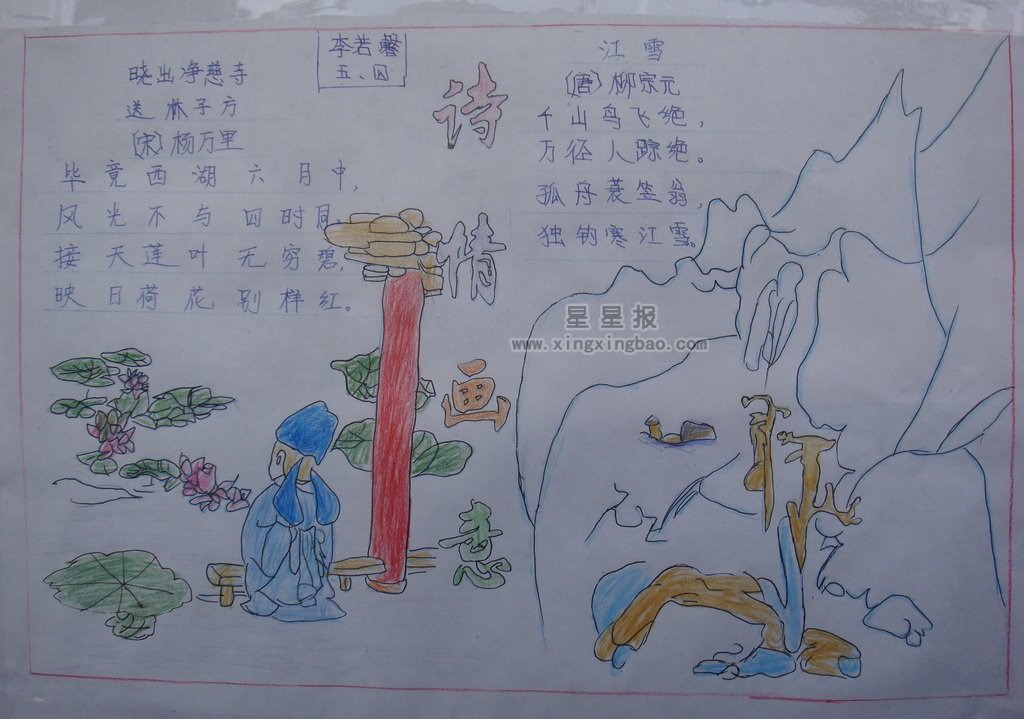 晓出净慈寺
送林子方
(宋)杨万里
毕竟西湖六月中,
风光不与四时同,
接天莲叶无穷碧,
映日荷花别样红。
李若馨
五、四
诗
情
画
意
江雪
(唐)柳宗元
千山鸟飞绝,
万径人踪绝。
孤舟蓑笠翁,
独钓寒江雪。
星星报
www.xingxingbao.com